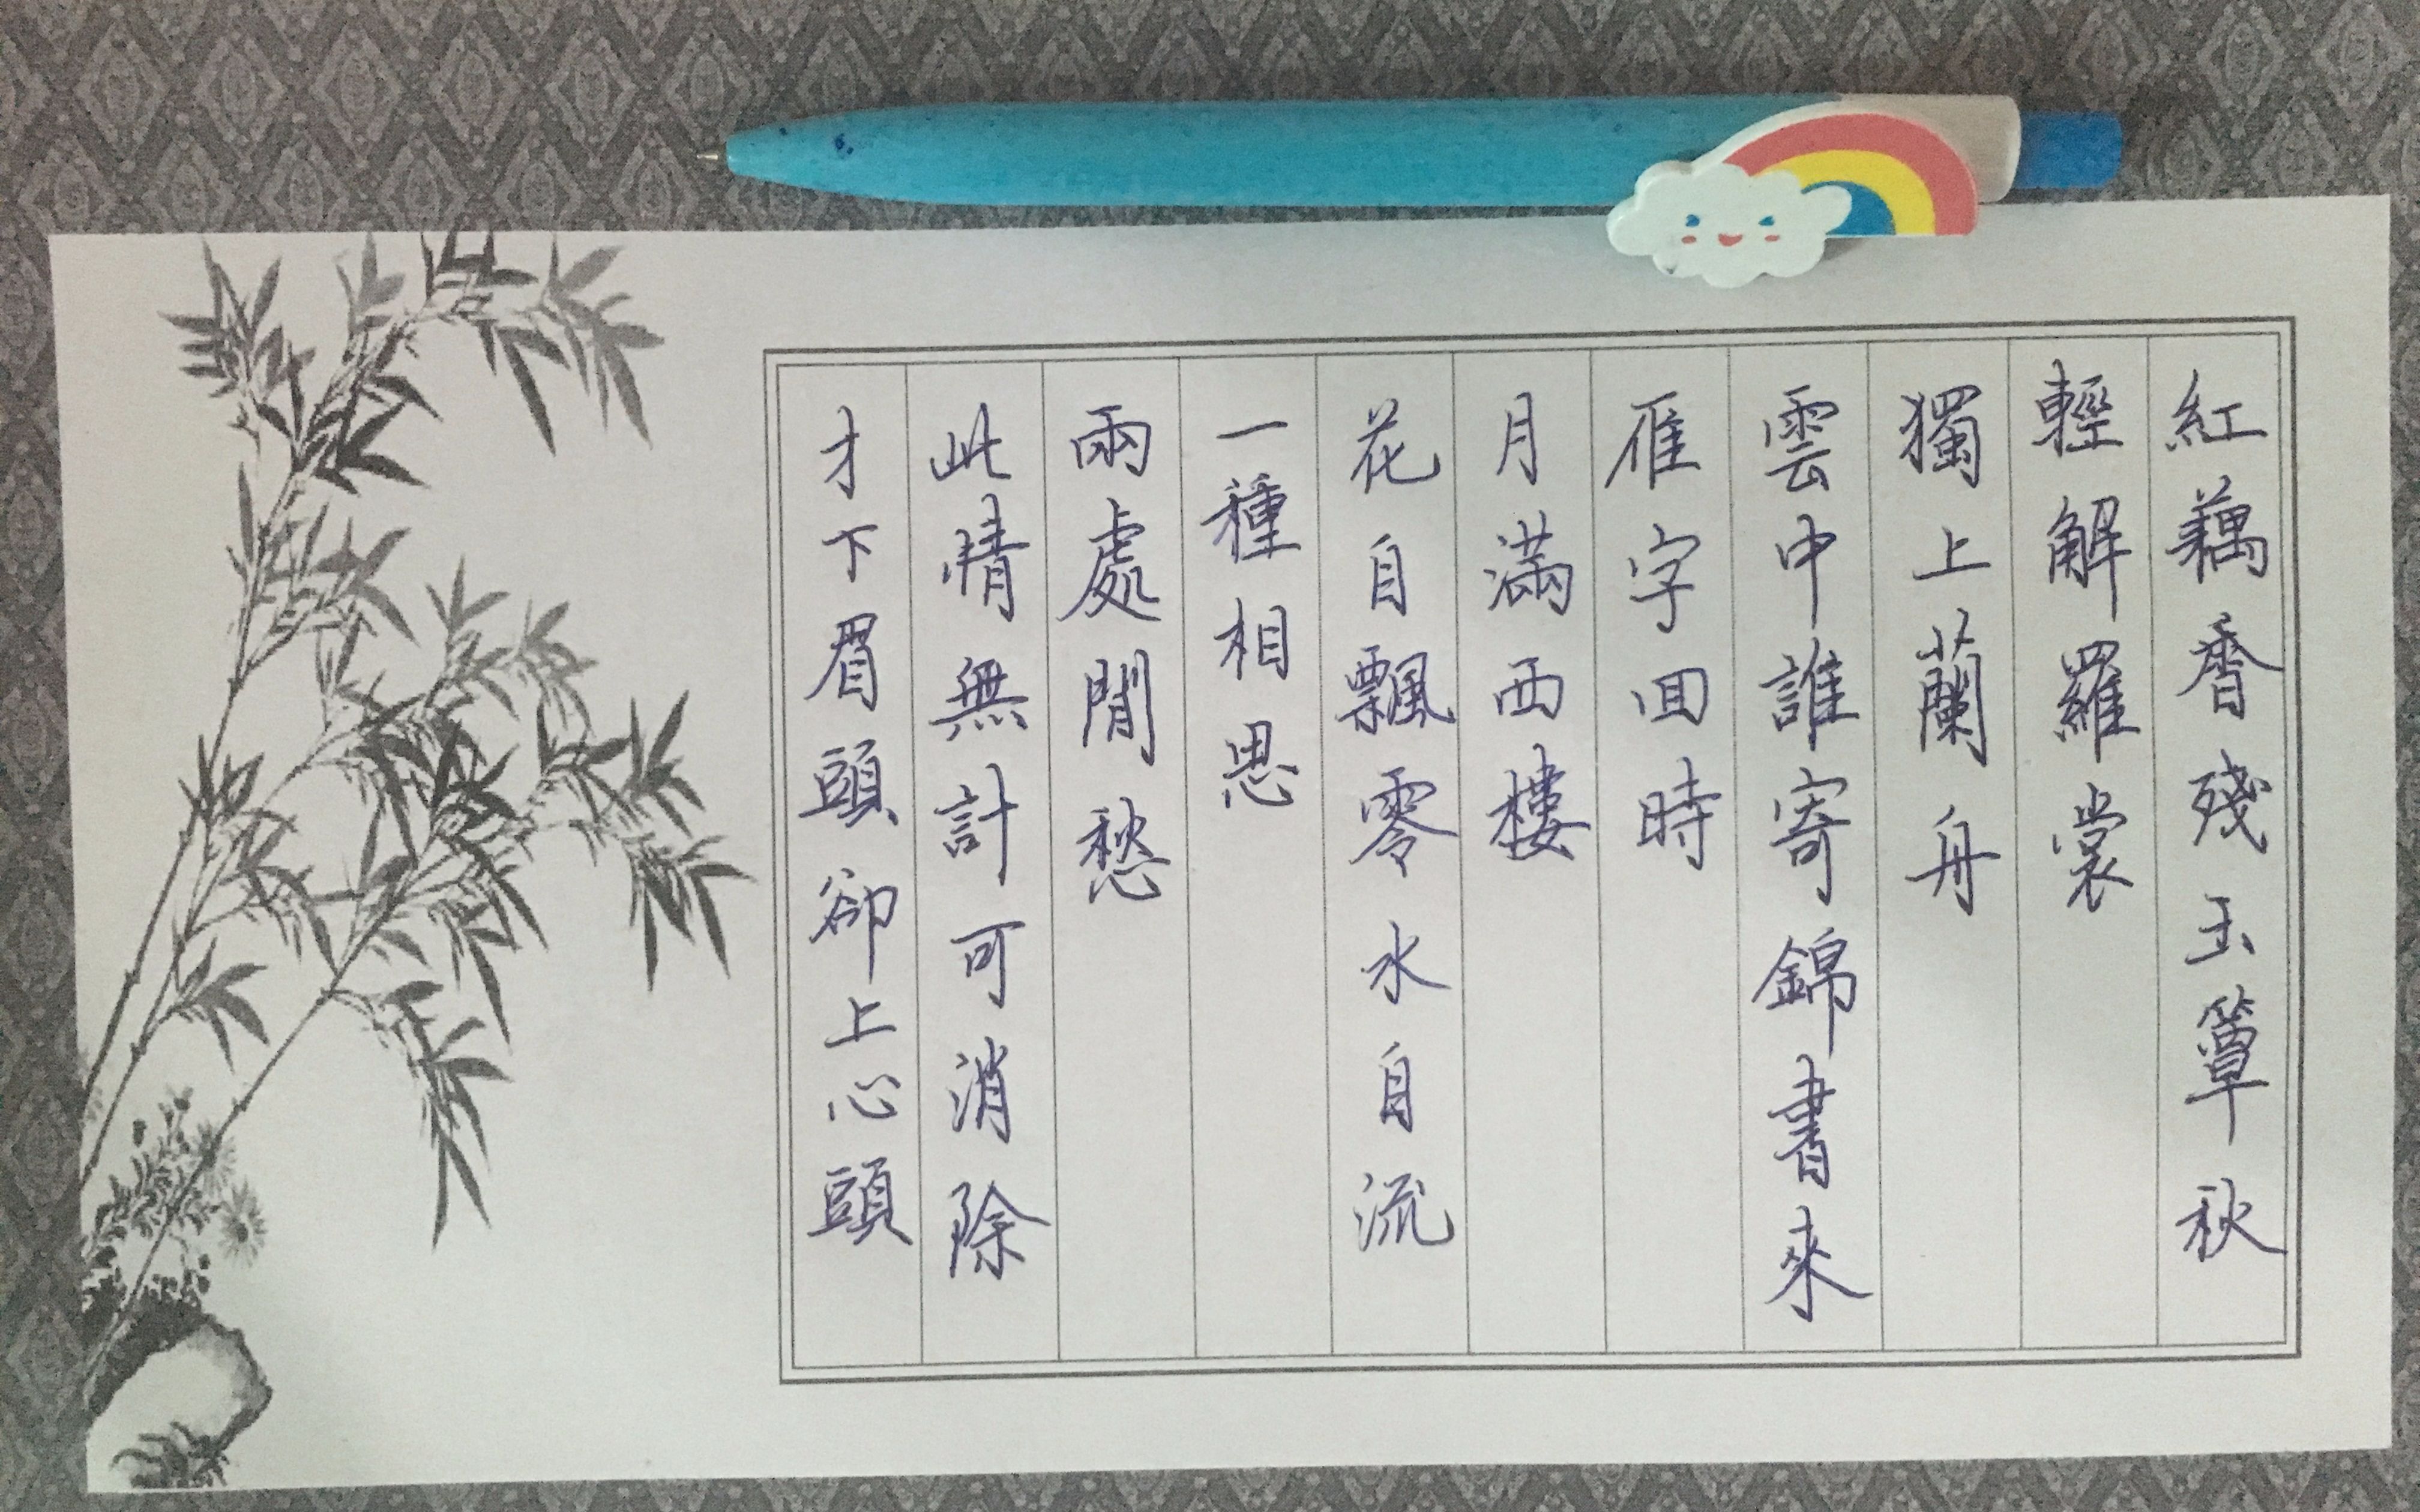 紅藕香殘玉簟秋
輕解羅裳
獨上蘭舟
雲中誰寄錦書來
雁字回時
月滿西樓
花自飄零水自流
一種相思
兩處閒愁
此情無計可消除
才下眉頭卻上心頭